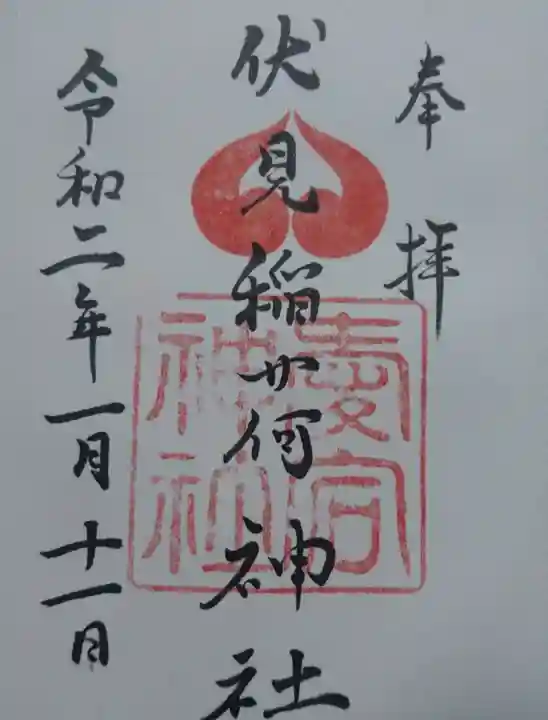 奉拝
伏見稲荷神社
愛宕神社
令和二年一月十一日